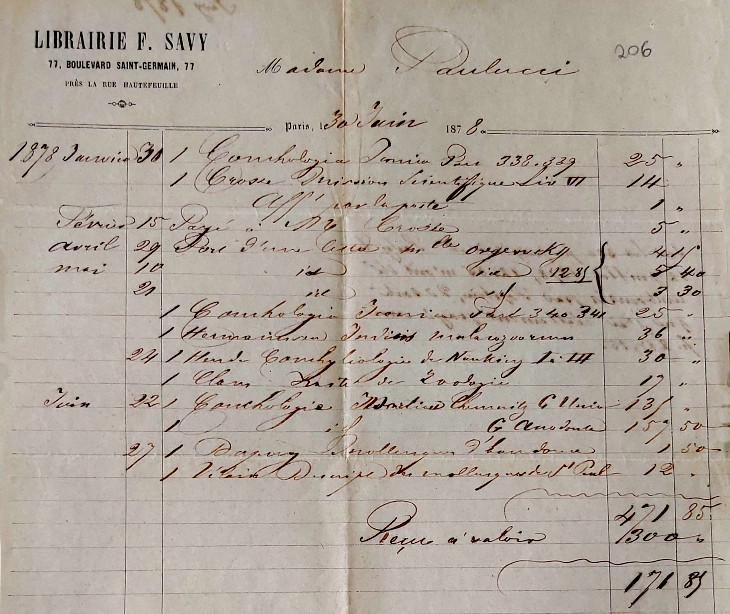 206
LIBRAIRIE F. SAVY
77, BOULEVARD SAINT-GERMAIN, 77
PRÈS LA RUE HAUTEFEUILLE
Madame Paulucci
Paris, le 30 Juin 1878
1878 Janvier 30 1 Conchologia Iconica Part 338.339 25 "
1 Crosse Mission Scientifique Liv VI 14 "
Afft par la poste 1 "
Février 15 Payé à Mr Crosse 5 "
avril 29 Port d'une Caisse Mlle 4 15
mai 10 id id 12 85 5 40
21 id id 3 30
1 Conchologia Iconica Part 340 341 25 "
1 Hermannsen Indicis malacozoorum 36 "
24 1 Heude Conchyliologie de Nanking I à III 30 "
1 Claus Traité de Zoologie 17 "
Juin 22 1 Conchologie Martini Chemnitz G Unio 135 "
1 id G Anodonta 157 50
27 1 Dupuy Mollusques d' 1 50
1 Vélain Descript des mollusques de St Paul 12 "
471 85
Reçu à valoir 300 "
171 85